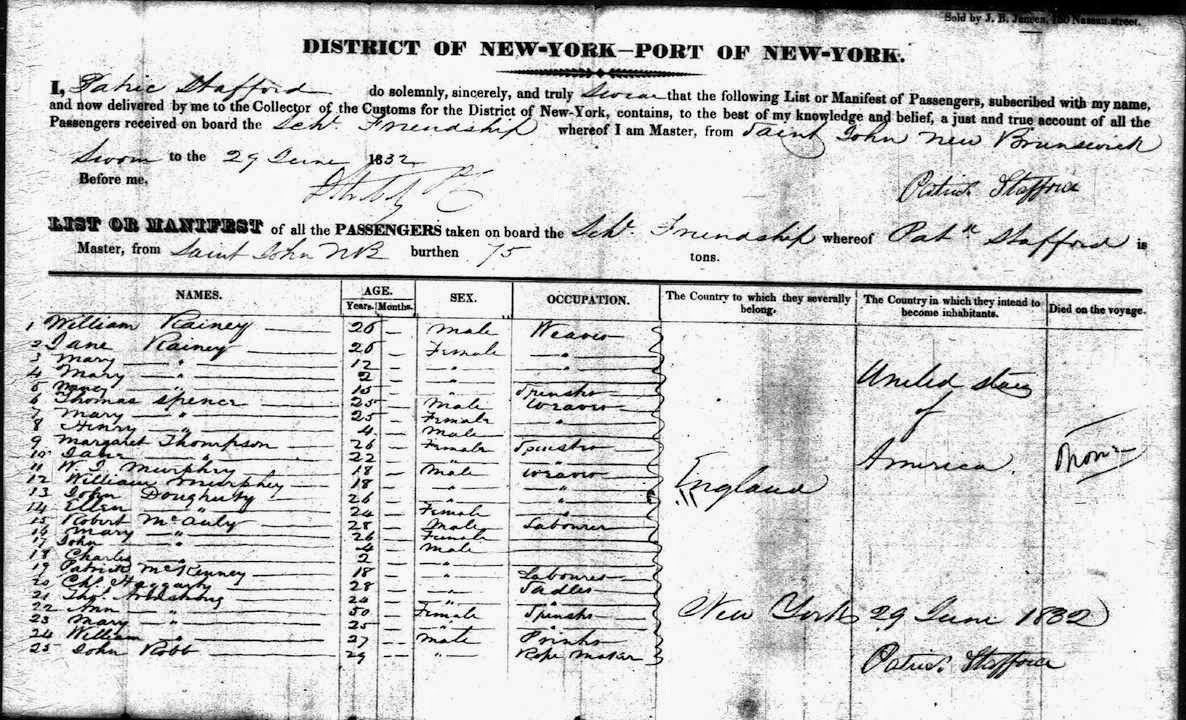 Sold by J. B. Jansen, 150 Nassau-street.
DISTRICT OF NEW-YORK—PORT OF NEW-YORK.
I, Patric Stafford do solemnly, sincerely, and truly Swear that the following List or Manifest of Passengers, subscribed with my name,
and now delivered by me to the Collector of the Customs for the District of New-York, contains, to the best of my knowledge and belief, a just and true account of all the
Passengers received on board the Schr. Friendship whereof I am Master, from Saint John New Brunswick
Sworn to the 29 June 1832
Before me,
Patrick Stafford
LIST OR MANIFEST of all the PASSENGERS taken on board the Schr. Friendship whereof Patk Stafford is
Master, from Saint John NB burthen 75 tons.
NAMES. AGE. Years. Months. SEX. OCCUPATION. The Country to which they severally belong. The Country in which they intend to become inhabitants. Died on the voyage.
1 William Rainey 26 — Male Weaver
2 Jane Rainey 26 — Female — "
3 Mary — " 12 — "
4 Mary — " 2 — "
5 " 15 — " Spinster
6 Thomas Spence 25 — Male Weaver
7 Mary — " 25 — Female "
8 Henry — " 4 — Male
9 Margaret Thompson 26 — Female Spinster
10 Jane " 22 — " "
11 W. J. Murphey 18 — Male Weaver
12 William Murphey 18 — " "
13 John Dougherty 26 — " "
14 Ellen " 24 — Female
15 Robert McAuly 28 — Male Labourer
16 Mary — " 26 — Female
17 John — " 4 — Male
18 Charles " 2 — "
19 Patrick McKenney 18 — " Labourer
20 Chs. Haggarty 28 — "
21 Thos. Armstrong 24 — " "
22 Ann — " 50 — Female Spinster
23 Mary — " 25 — " "
24 William " 27 — Male Printer
25 John Robb 29 — " Rope Maker
England
United States
of
America
None
New York 29 June 1832
Patrick Stafford